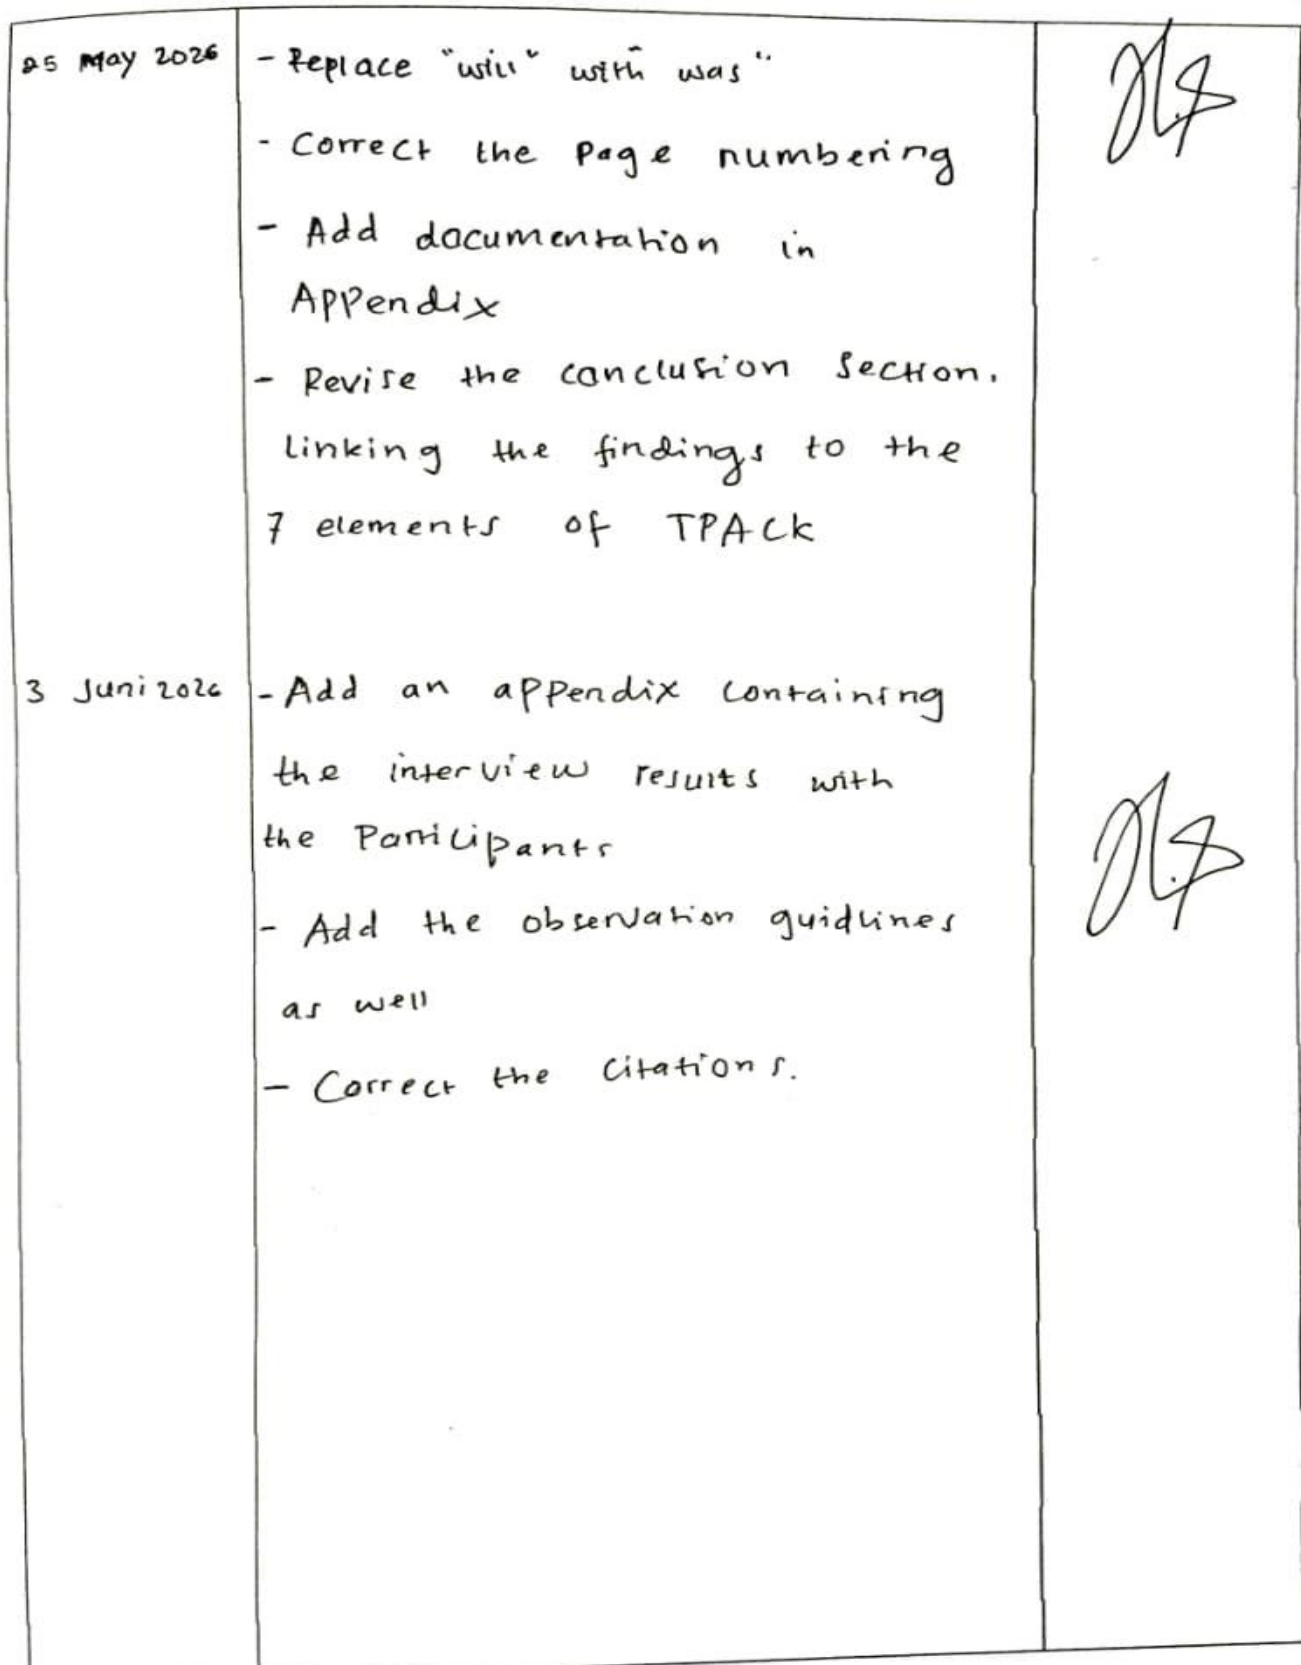 25 May 2026
- Replace "will" with was"
- Correct the Page numbering
- Add documentation in
Appendix
- Revise the conclusion Section.
linking the findings to the
7 elements of TPACK
3 Juni 2026
- Add an appendix containing
the interview results with
the Participants
- Add the observation guidlines
as well
- Correct the Citations.